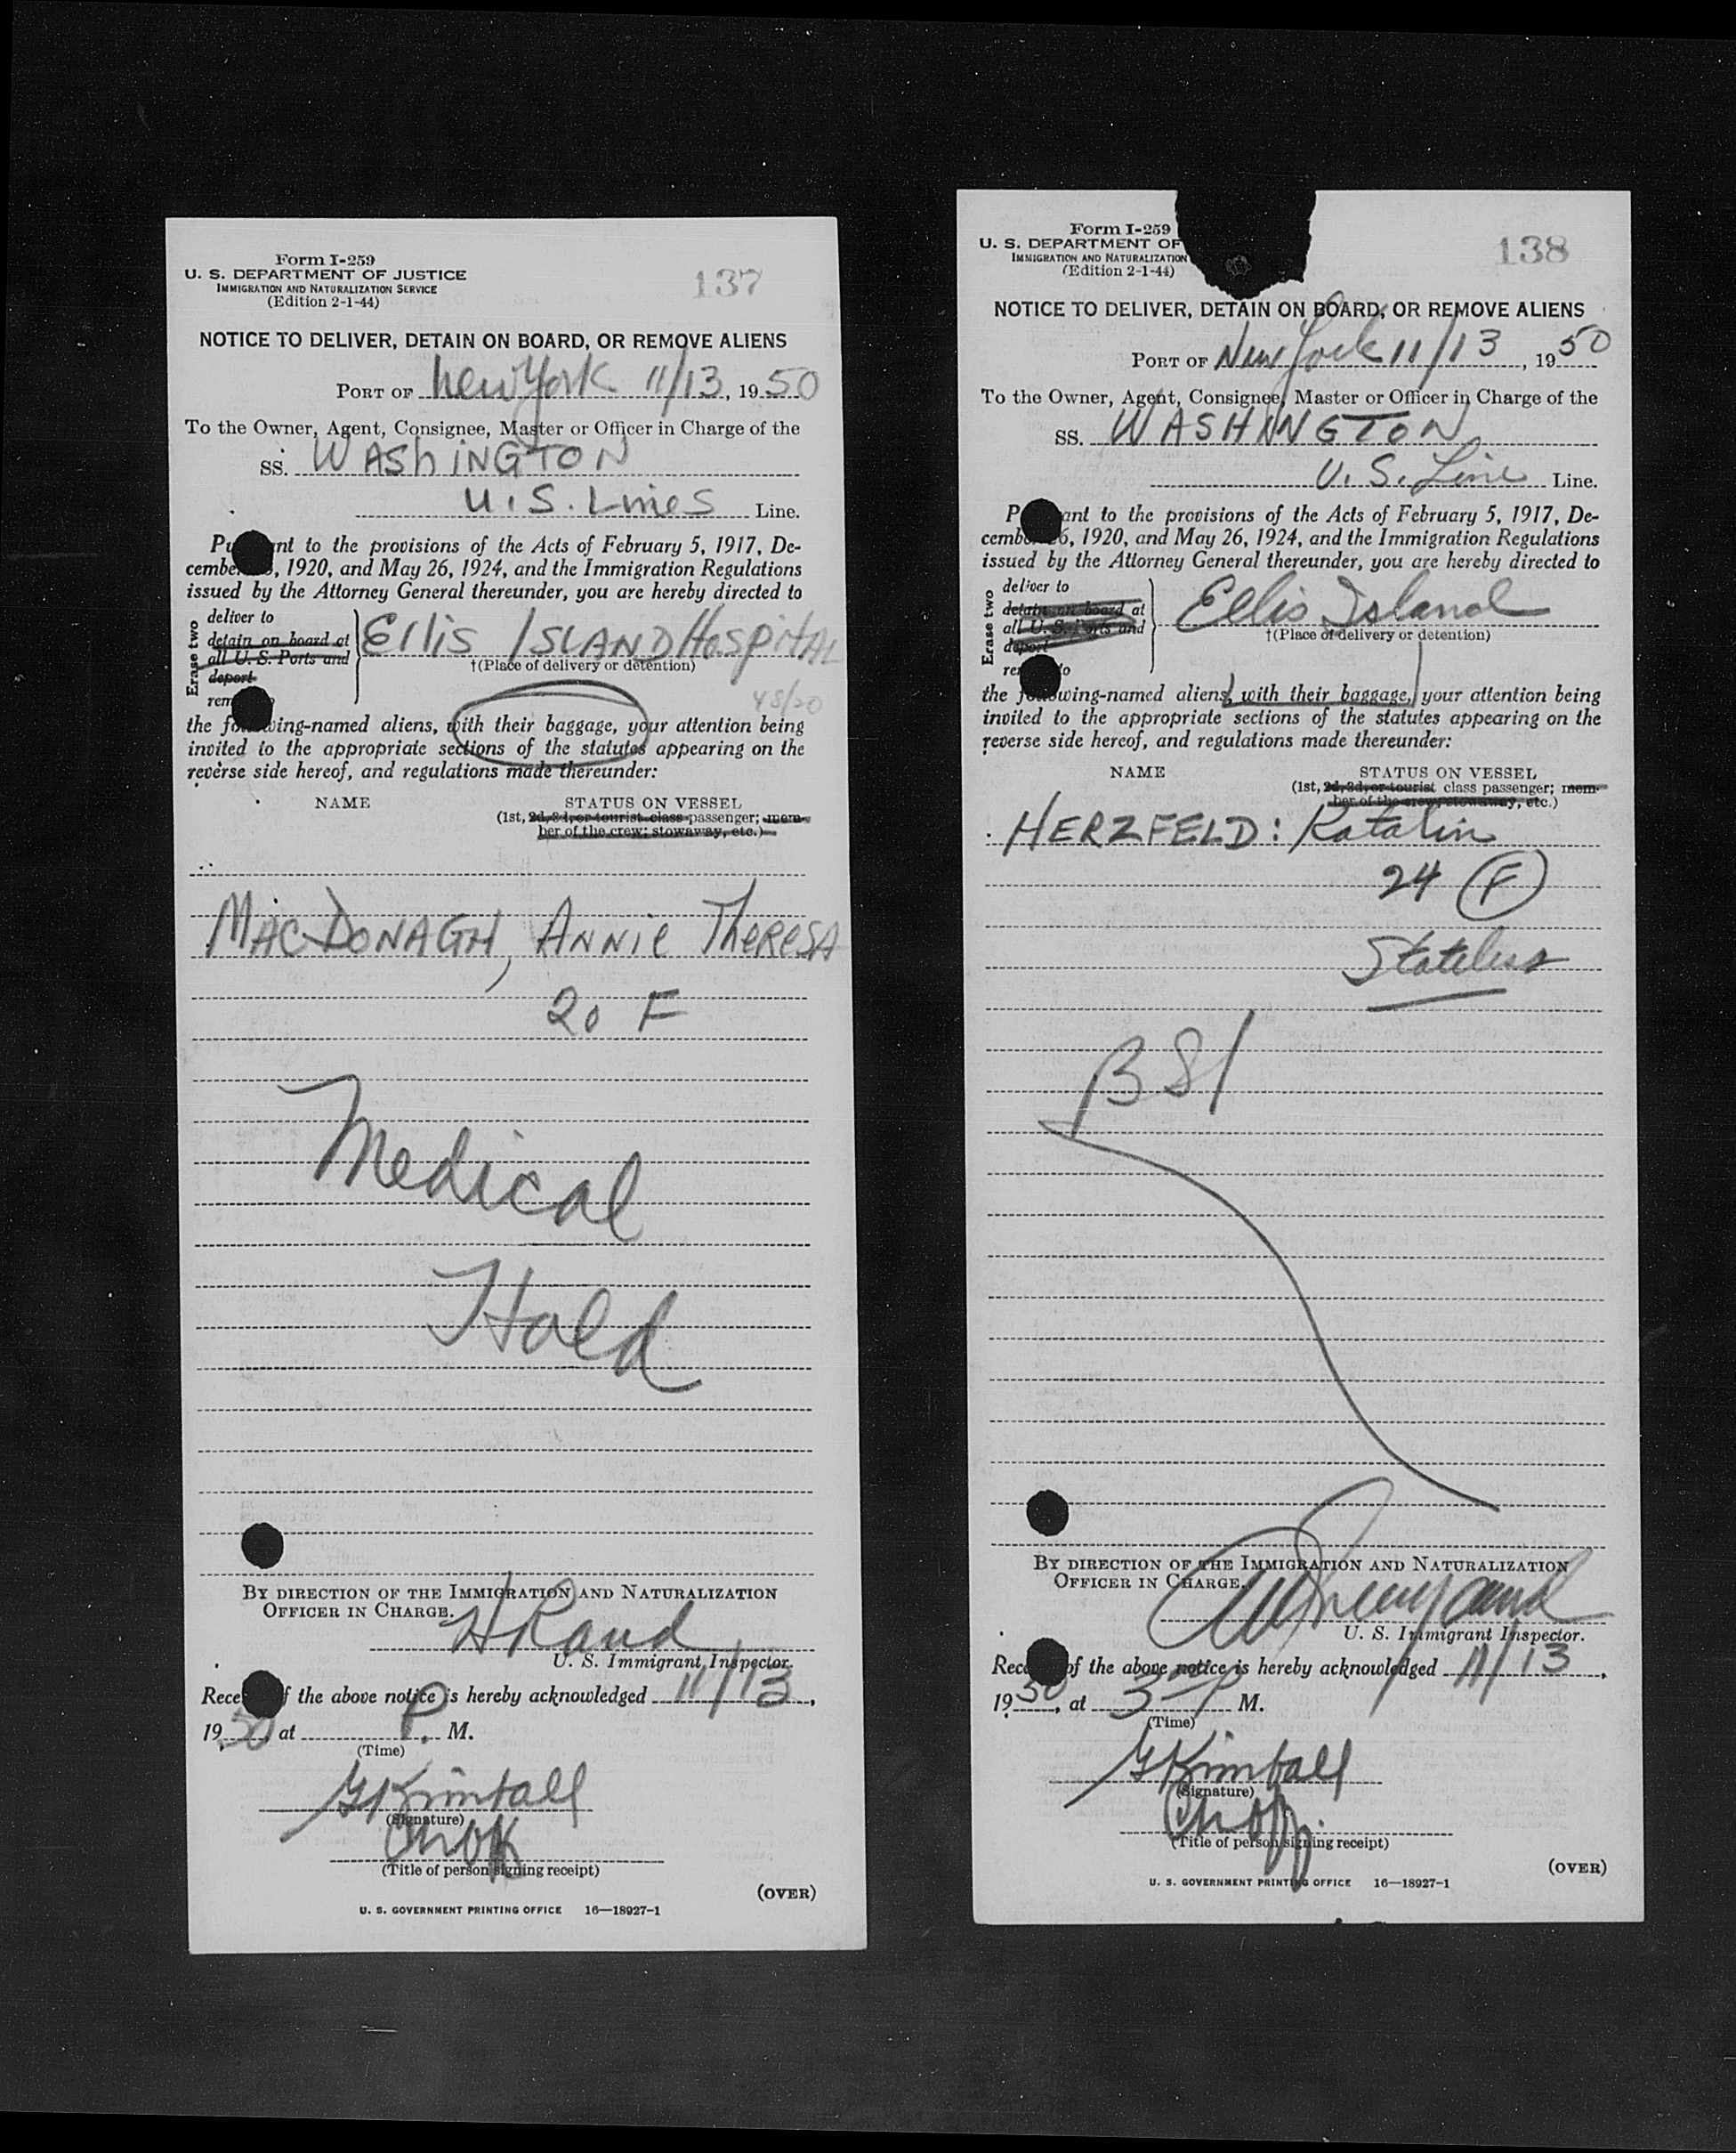 Form I-259
U. S. DEPARTMENT OF JUSTICE
IMMIGRATION AND NATURALIZATION SERVICE
(Edition 2-1-44)
137
NOTICE TO DELIVER, DETAIN ON BOARD, OR REMOVE ALIENS
PORT OF New York 11/13, 1950
To the Owner, Agent, Consignee, Master or Officer in Charge of the
SS. WAShiNGTON
U.S. Lines Line.
Pu nt to the provisions of the Acts of February 5, 1917, De-
cembe , 1920, and May 26, 1924, and the Immigration Regulations
issued by the Attorney General thereunder, you are hereby directed to
Erase two
deliver to
detain on board at
all U. S. Ports and
deport
rem
Ellis ISLAND HospitAL
†(Place of delivery or detention)
48/20
the f wing-named aliens, with their baggage, your attention being
invited to the appropriate sections of the statutes appearing on the
reverse side hereof, and regulations made thereunder:
NAME STATUS ON VESSEL
(1st, 2d, 3d, or tourist class passenger; mem-
ber of the crew; stowaway, etc.)
MacDONAGH, ANNie TheReSA
20 F
Medical
Hold
BY DIRECTION OF THE IMMIGRATION AND NATURALIZATION
OFFICER IN CHARGE.
H Rand
U. S. Immigrant Inspector.
Rece f the above notice is hereby acknowledged 11/13,
1950, at P. M.
(Time)
G Kimball
(Signature)
(Title of person signing receipt)
(OVER)
U. S. GOVERNMENT PRINTING OFFICE 16—18927-1
Form I-259
U. S. DEPARTMENT OF
IMMIGRATION AND NATURALIZATION
(Edition 2-1-44)
138
NOTICE TO DELIVER, DETAIN ON BOARD, OR REMOVE ALIENS
PORT OF New York 11/13, 1950
To the Owner, Agent, Consignee, Master or Officer in Charge of the
SS. WASHINGTON
U. S. Line Line.
P ant to the provisions of the Acts of February 5, 1917, De-
cembe 6, 1920, and May 26, 1924, and the Immigration Regulations
issued by the Attorney General thereunder, you are hereby directed to
Erase two
deliver to
detain on board at
all U. S. Ports and
deport
re o
Ellis Island
†(Place of delivery or detention)
the f wing-named aliens, with their baggage, your attention being
invited to the appropriate sections of the statutes appearing on the
reverse side hereof, and regulations made thereunder:
NAME STATUS ON VESSEL
(1st, 2d, 3d, or tourist class passenger; mem-
ber of the crew, stowaway, etc.)
HERZFELD: Katalin
24 F
Stateless
BSI
BY DIRECTION OF THE IMMIGRATION AND NATURALIZATION
OFFICER IN CHARGE.
U. S. Immigrant Inspector.
Rece of the above notice is hereby acknowledged 11/13,
1950, at 3 P M.
(Time)
G Kimball
(Signature)
(Title of person signing receipt)
(OVER)
U. S. GOVERNMENT PRINTING OFFICE 16—18927-1